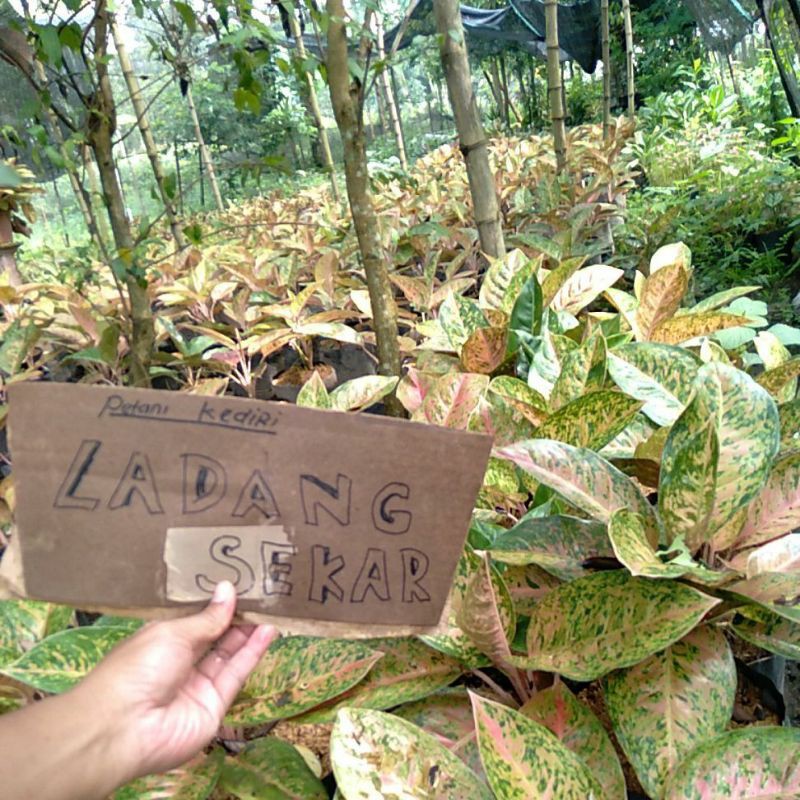 Petani KediRi
LADANG
SEKAR